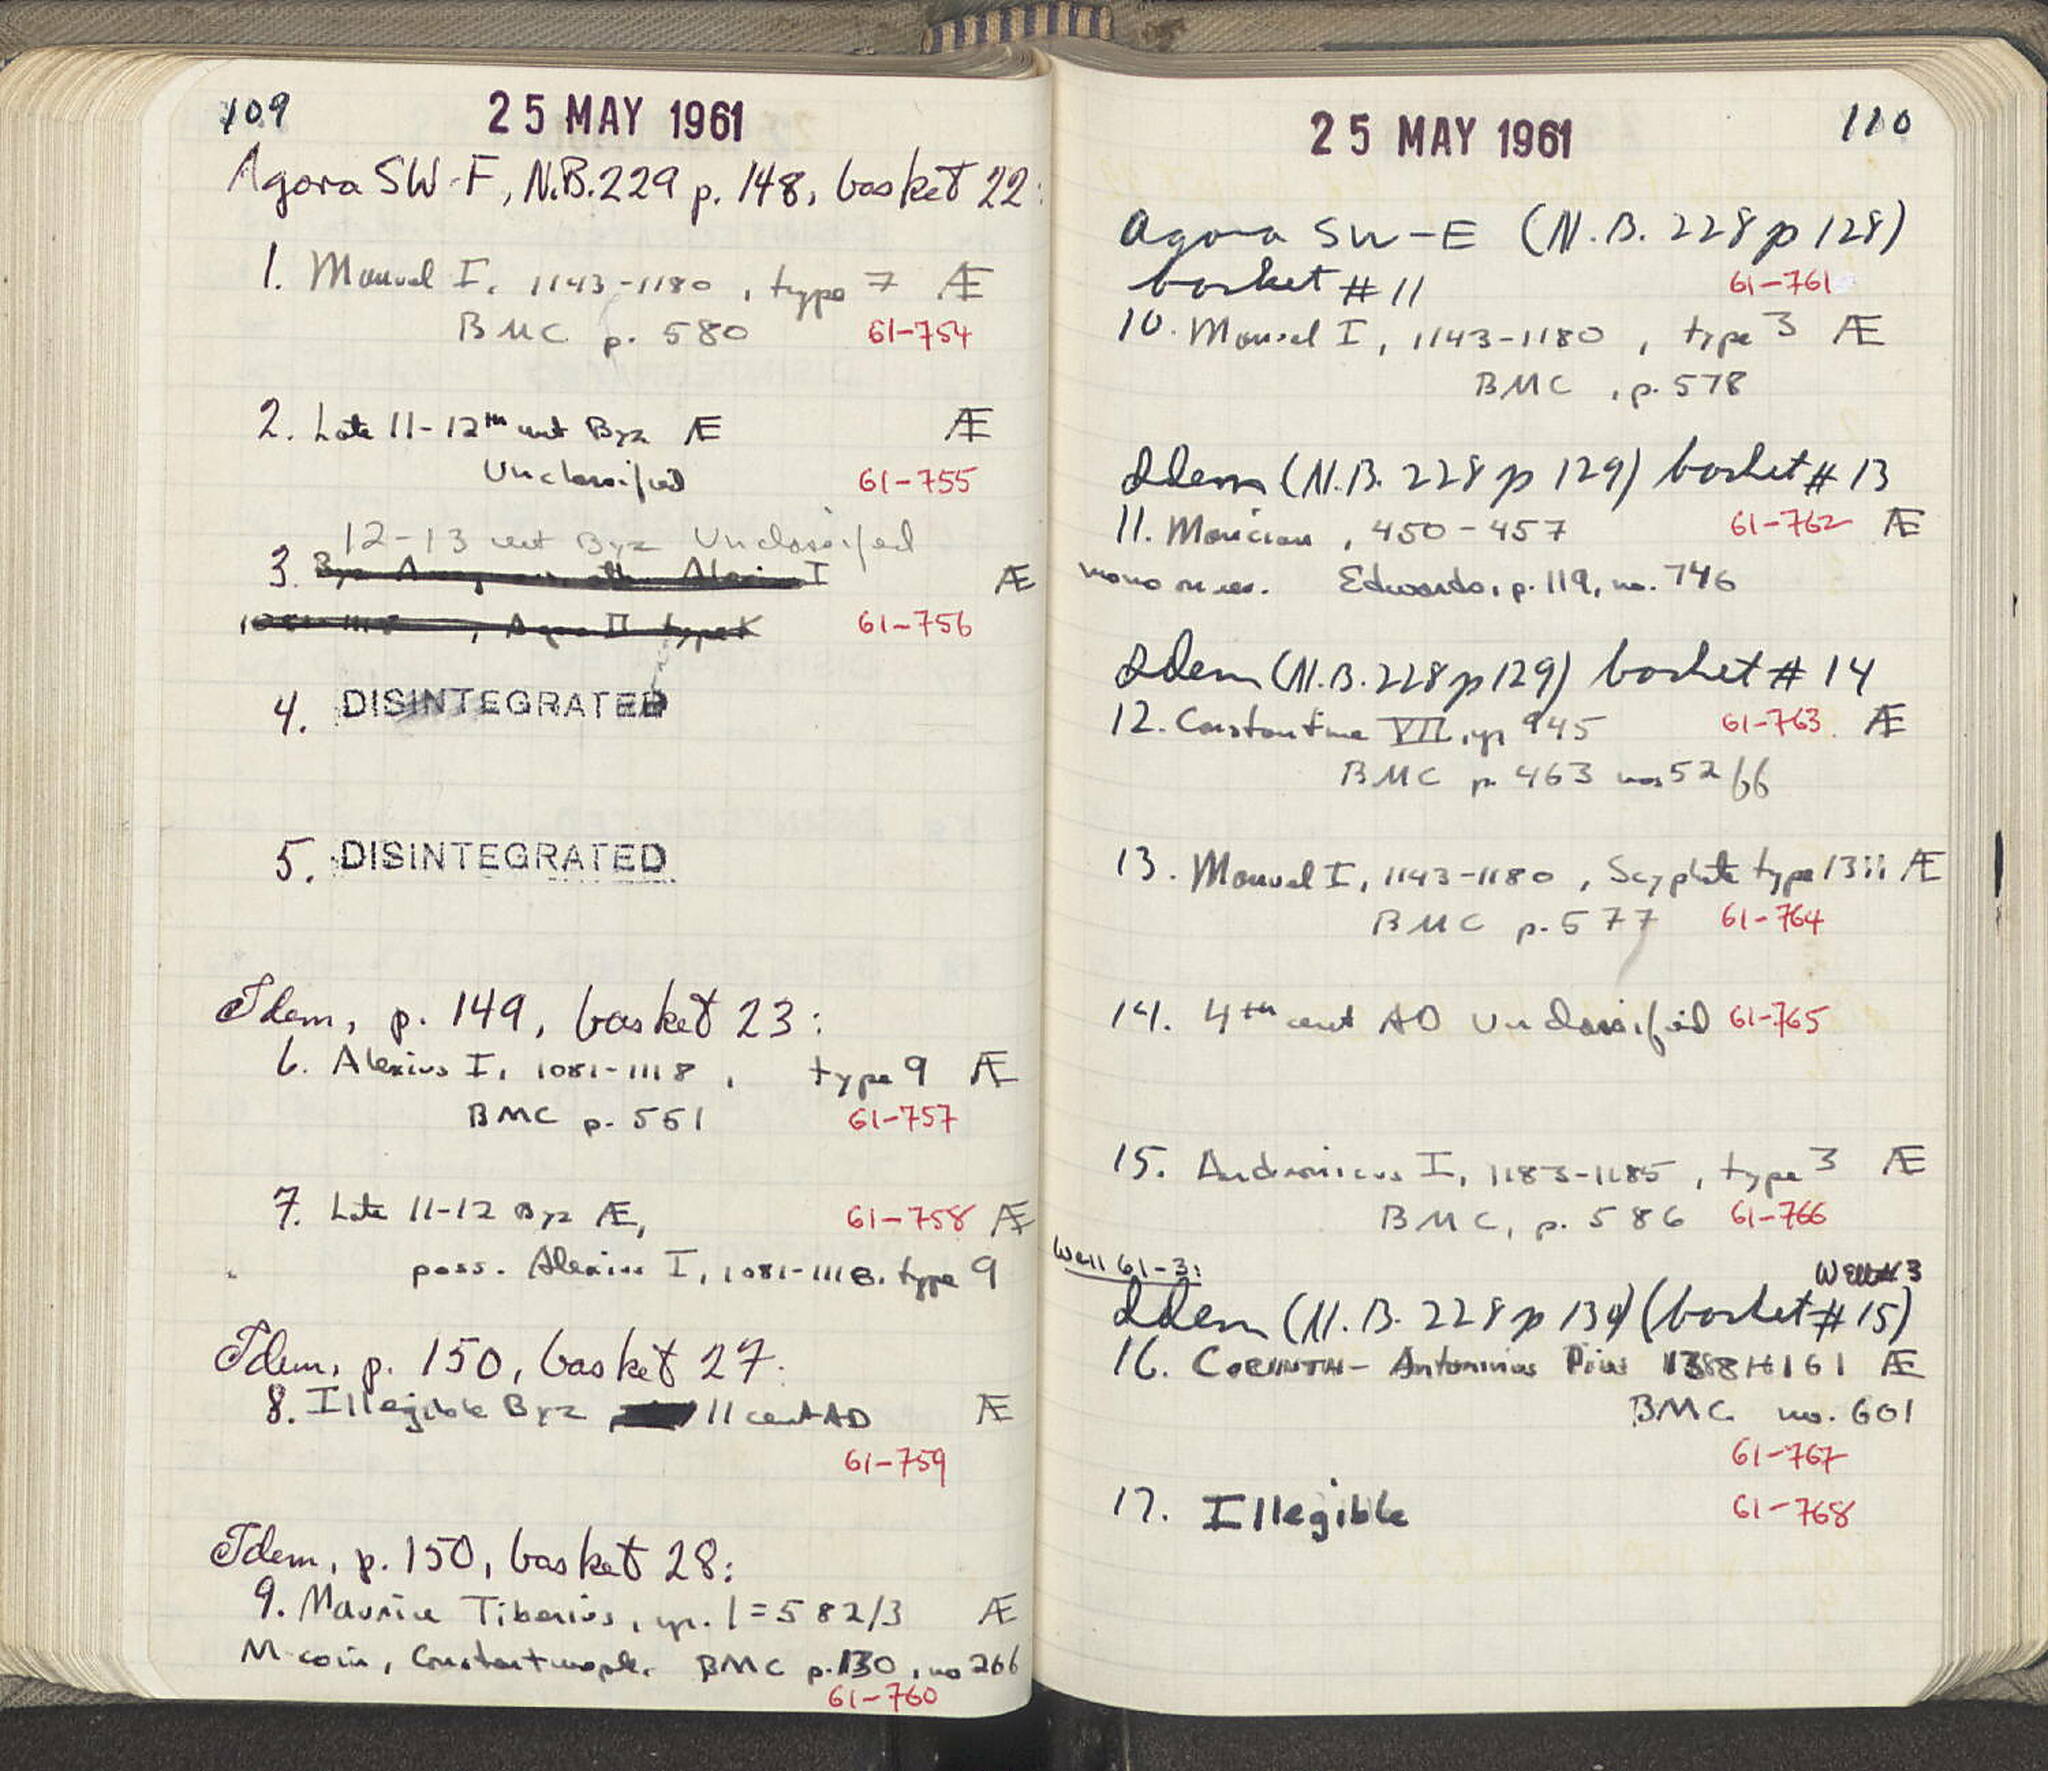 109
25 MAY 1961
Agora SW-F, N.B. 229 p. 148, basket 22:
1. Manuel I, 1143-1180, type 7 Æ
BMC p. 580 61-754
2. Late 11-12th cent Byz Æ Æ
Unclassified 61-755
12-13 cent Byz Unclassified
3. I Æ
61-756
4. DISINTEGRATED
5. DISINTEGRATED
Idem, p. 149, basket 23:
6. Alexius I, 1081-1118, type 9 Æ
BMC p. 551 61-757
7. Late 11-12 Byz Æ, 61-758 Æ
poss. Alexius I, 1081-1118, type 9
Idem, p. 150, basket 27:
8. Illegible Byz 11 cent AD Æ
61-759
Idem, p. 150, basket 28:
9. Maurice Tiberius, yr. 1 = 582/3 Æ
M coin, Constantinople. BMC p. 130, no 266
61-760
25 MAY 1961
110
Agora SW-E (N.B. 228 p 128)
basket #11 61-761
10. Manuel I, 1143-1180, type 3 Æ
BMC, p. 578
Idem (N.B. 228 p 129) basket # 13
11. Marcian, 450-457 61-762 Æ
Edwards, p. 119, no. 746
Idem (N.B. 228 p 129) basket # 14
12. Constantine VII, yr 945 61-763 Æ
BMC p. 463 nos 52/66
13. Manuel I, 1143-1180, Scyphate type 13ii Æ
BMC p. 577 61-764
14. 4th cent AD Unclassified 61-765
15. Andronicus I, 1183-1185, type 3 Æ
BMC, p. 586 61-766
Well 61-3: Well # 3
Idem (N.B. 228 p 130) (basket # 15)
16. CORINTH - Antoninus Pius 138-161 Æ
BMC no. 601
61-767
17. Illegible 61-768